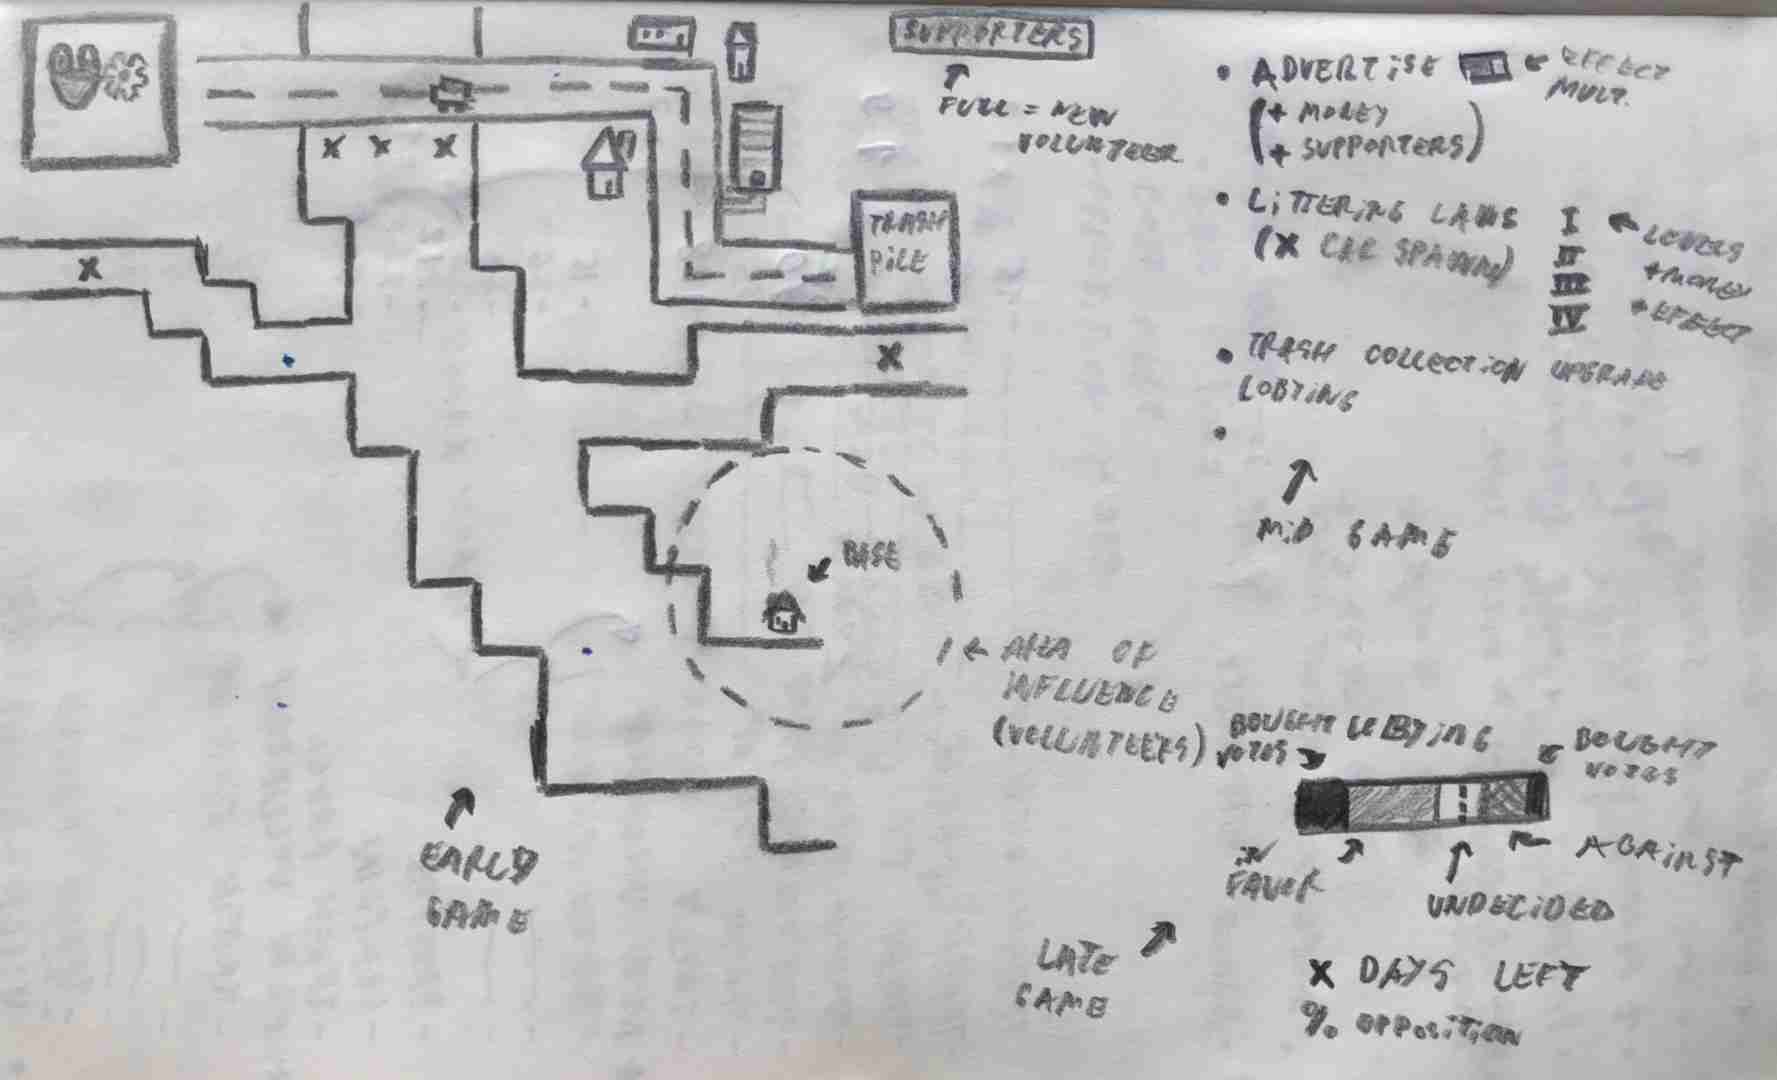 SUPPORTERS
FULL = NEW
VOLUNTEER
TRASH
PILE
X X X
X
X
BASE
AREA OF
INFLUENCE
(VOLUNTEERS)
EARLY
GAME
• ADVERTISE ← EFFECT
MULT.
(+ MONEY
+ SUPPORTERS)
• LITTERING LAWS I ← LEVELS
(X CAN SPAWN) II + MONEY
III + EFFECT
IV
• TRASH COLLECTION UPGRADE
LOBYING
•
MID GAME
BOUGHT LOBYING BOUGHT
VOTES VOTES
IN
FAVOR
UNDECIDED
AGAINST
LATE
GAME
X DAYS LEFT
% OPPOSITION